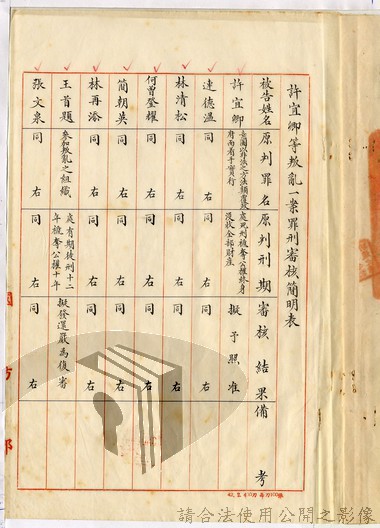 許宜卿等叛亂一案罪刑審核簡明表
被告姓名 原判罪名 原判刑期 審核結果 備考
許宜卿 意圖以非法之方法顛覆政府而着手實行 處死刑褫奪公權終身沒收全部財產 擬予照准
達德溫 同右 同右 同右
林清松 同右 同右 同右
何曾登耀 同右 同右 同右
簡朝英 同右 同右 同右
林再添 同右 同右 同右
王首題 參加叛亂之組織 處有期徒刑十二年褫奪公權十年 擬發還嚴為復審
張文泉 同右 同右 同右
國防部
請合法使用公開之影像